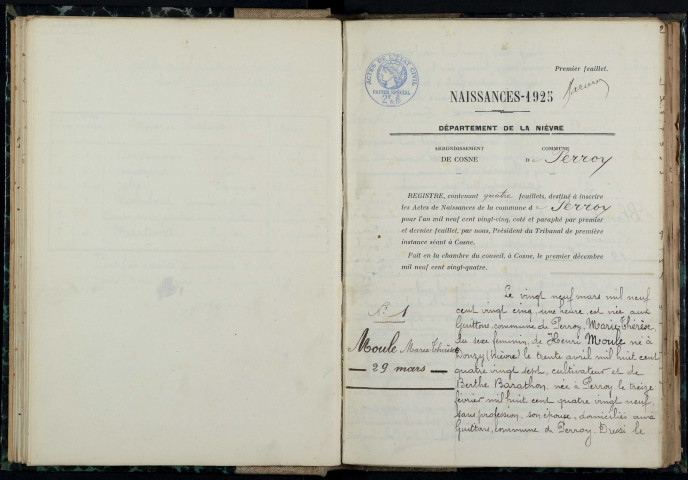 2
Premier feuillet.
ACTES DE L'ÉTAT CIVIL
PAPIER SPÉCIAL
NAISSANCES-1925
DÉPARTEMENT DE LA NIÈVRE
ARRONDISSEMENT
DE COSNE
COMMUNE
De Perroy
REGISTRE, contenant quatre feuillets, destiné à inscrire
les Actes de Naissances de la commune de Perroy
pour l'an mil neuf cent vingt-cinq, coté et paraphé par premier
et dernier feuillet, par nous, Président du Tribunal de première
instance séant à Cosne.
Fait en la chambre du conseil, à Cosne, le premier décembre
mil neuf cent vingt-quatre.
N° 1
Moule Marie Thérèse
— 29 mars —
Le vingt neuf mars mil neuf
cent vingt cinq, une heure, est née aux
Guittons, commune de Perroy, Marie Thérèse
du sexe féminin, de Henri Moule né à
Donzy (Nièvre) le trente avril mil huit cent
quatre vingt sept, cultivateur et de
Berthe Barathon, née à Perroy le treize
février mil huit cent quatre vingt neuf,
sans profession, son épouse, domiciliés aux
Guittons, commune de Perroy. Dressé le